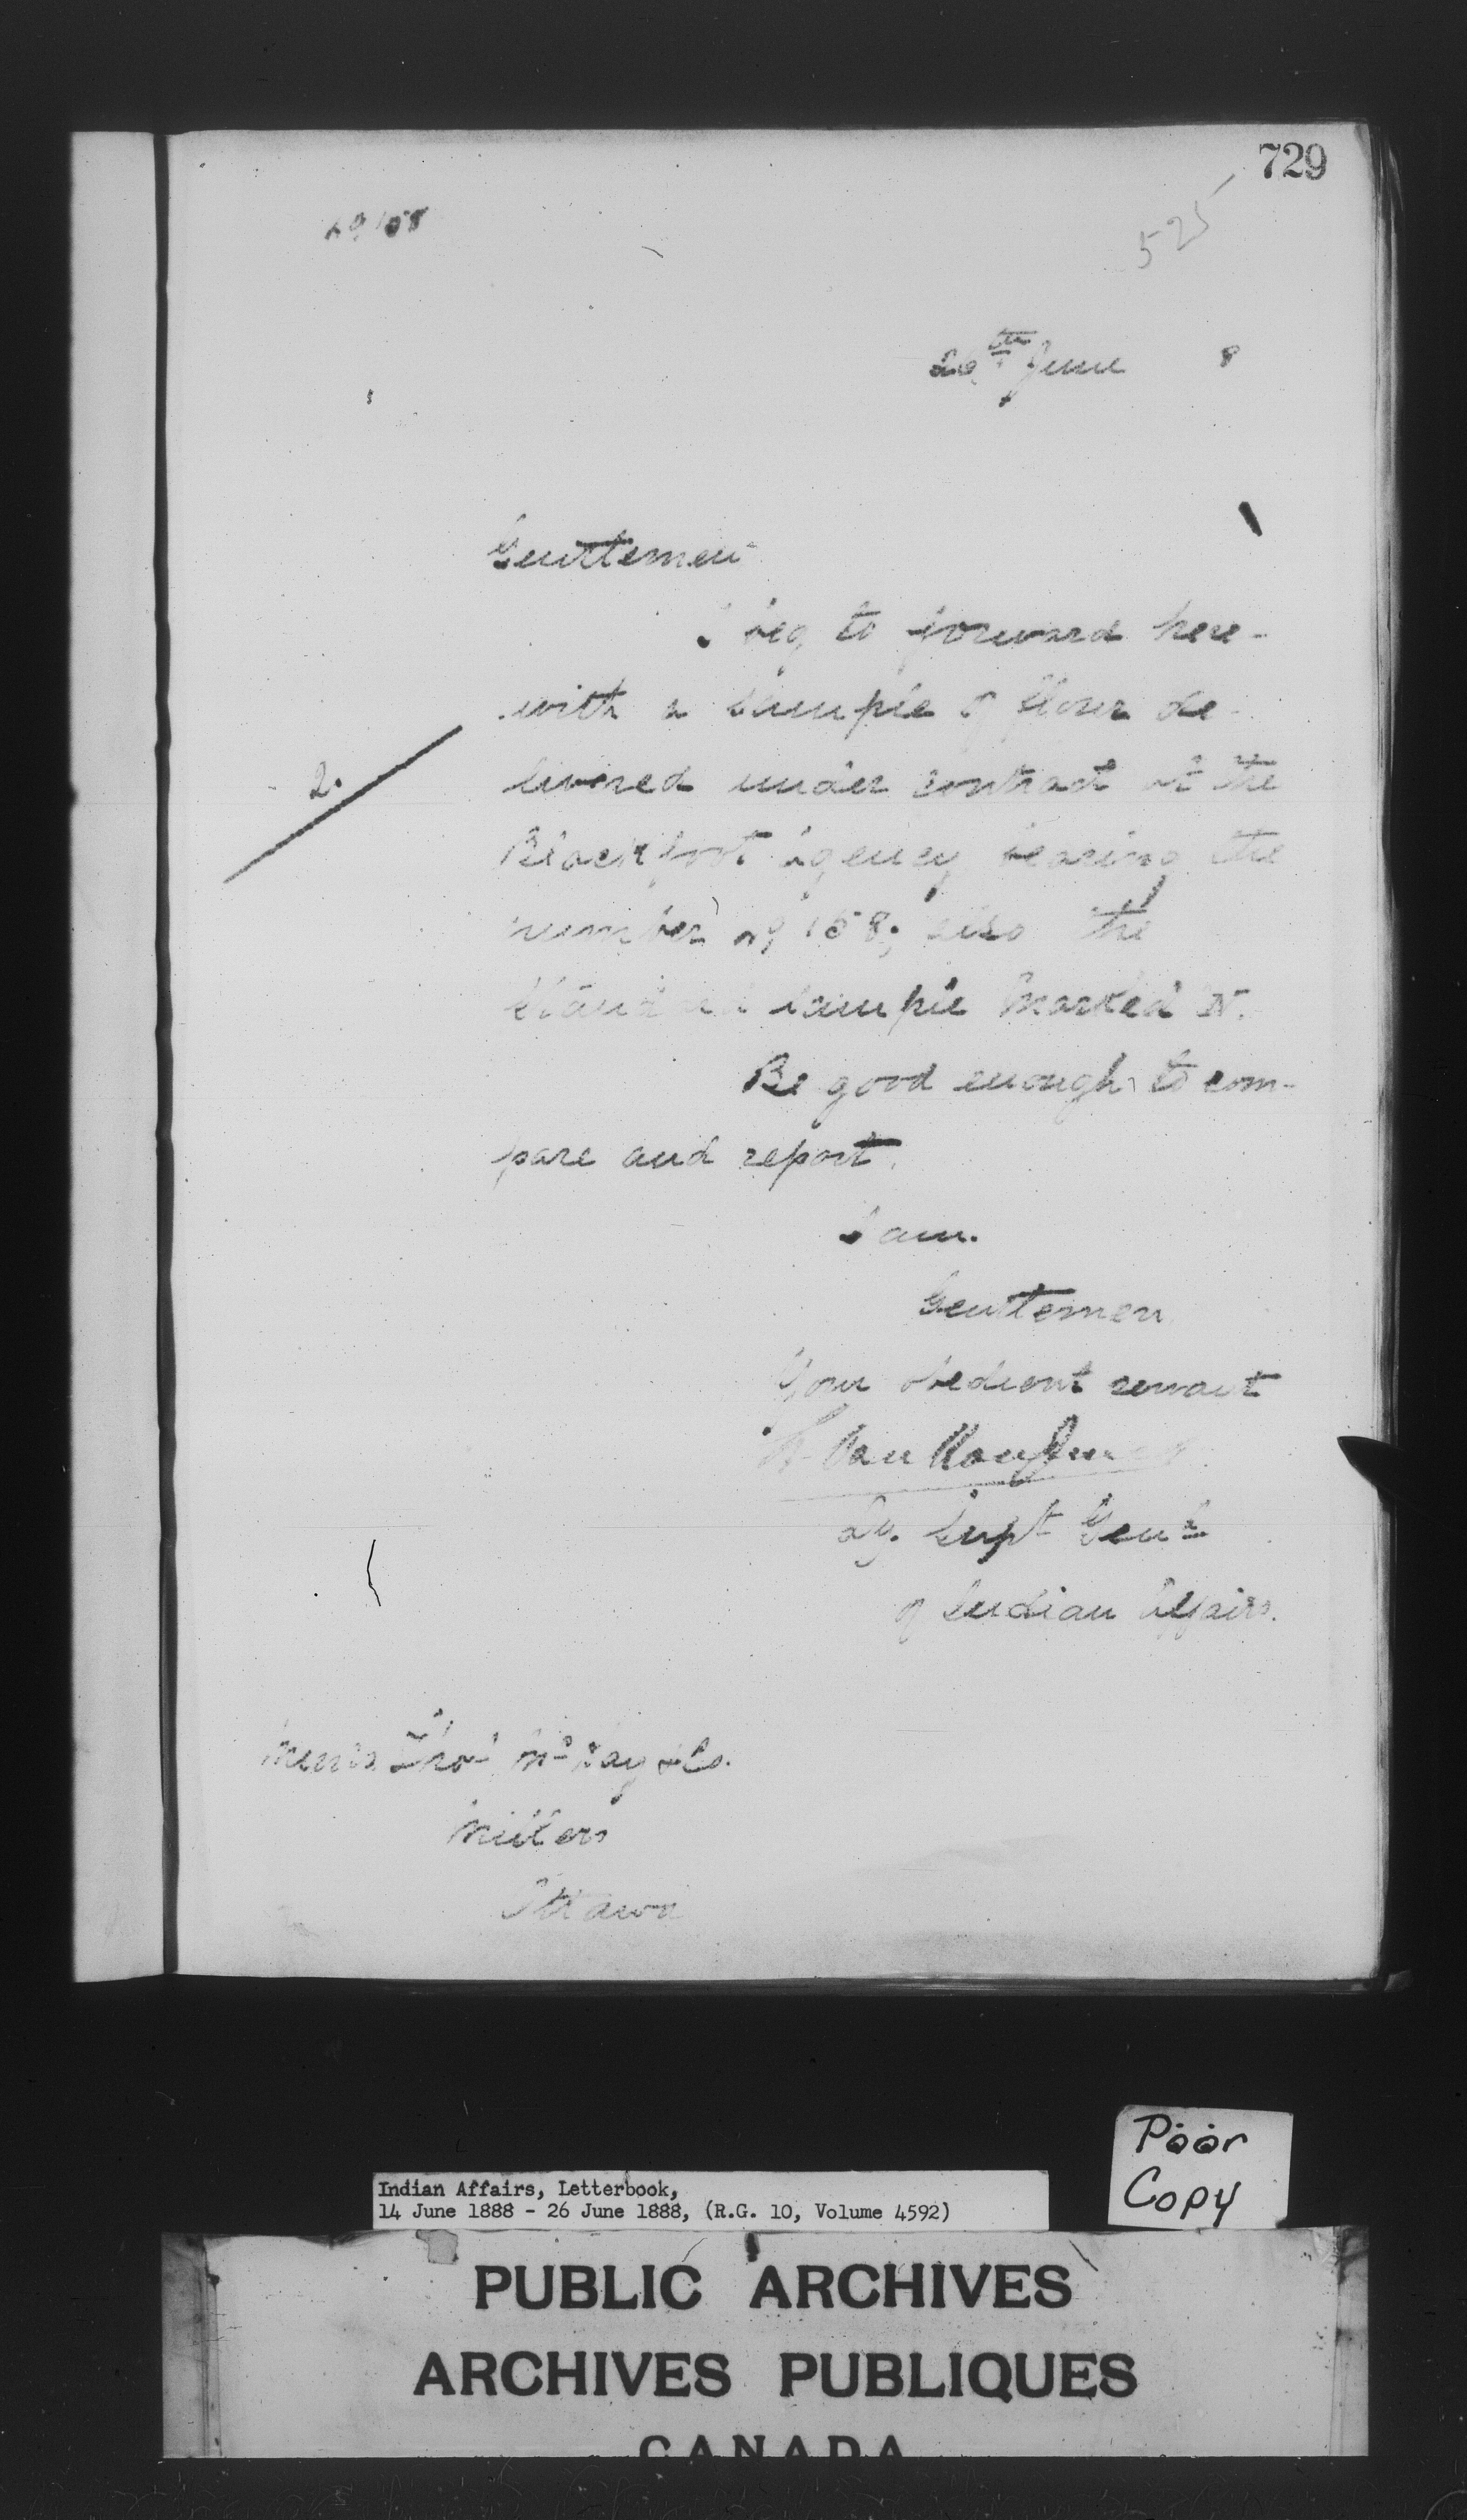 729
525
26th June 8
Gentlemen
I beg to forward here-
with a sample of flour de-
2.
livered under contract at the
Blackfoot Agency bearing the
number 158; also the
Standard sample marked N.
Be good enough to com-
pare and report.
I am.
Gentlemen
Your obedient servant
L. VanKoughnet
Dy. Supt Genl
of Indian Affairs.
Messrs Thos McKay & Co.
Millers
Ottawa
Poor
Copy
Indian Affairs, Letterbook,
14 June 1888 - 26 June 1888, (R.G. 10, Volume 4592)
PUBLIC ARCHIVES
ARCHIVES PUBLIQUES
CANADA